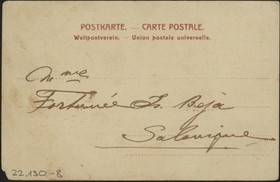 POSTKARTE. — CARTE POSTALE.
Weltpostverein. — Union postale universelle.
Mme
Fortunée S. Beja
Salonique
22.130-8